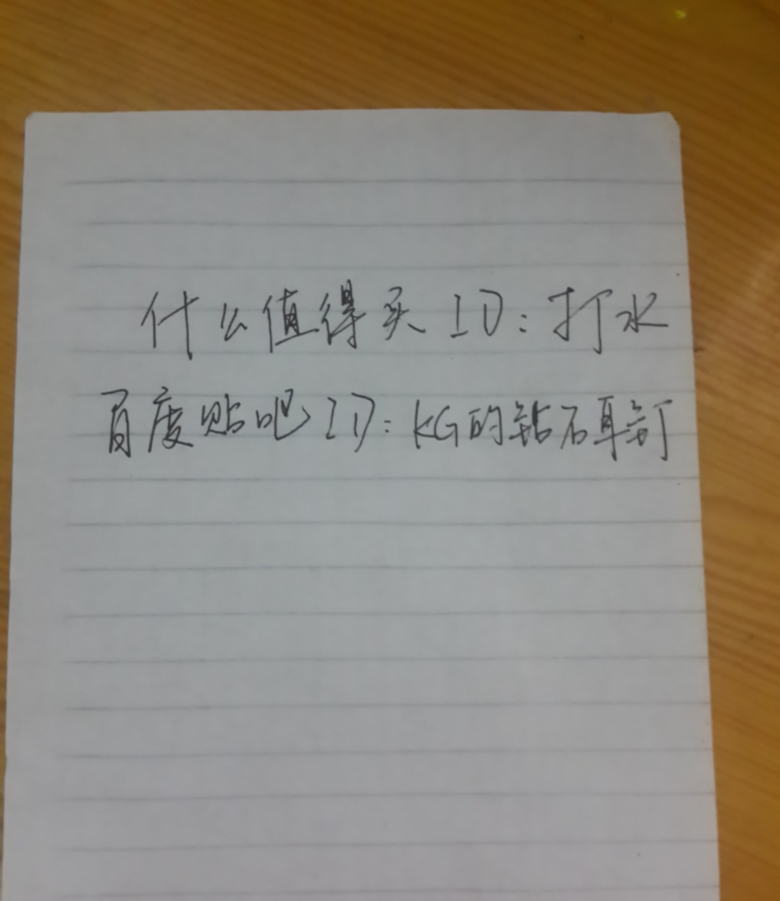 什么值得买ID:打水
百度贴吧ID:KG的钻石耳钉